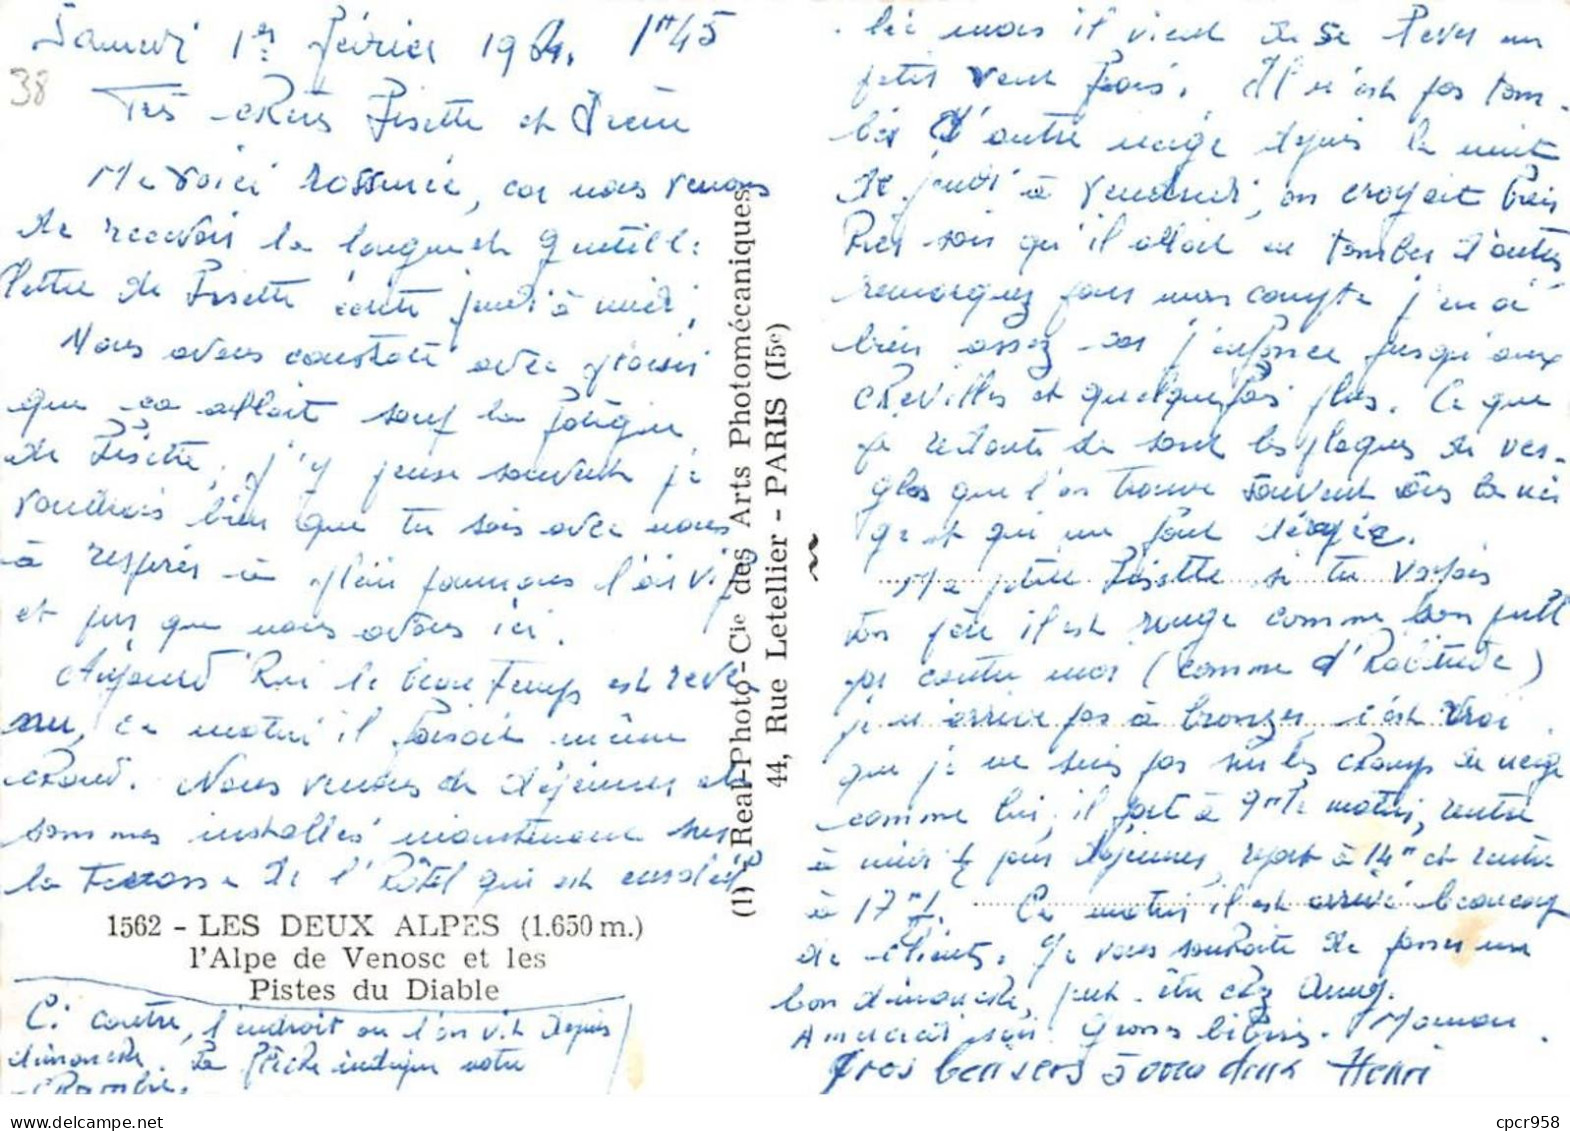 Samedi 1er février 1964. 1H45
38
Très chers Lisette et
Me voici rassurée, car nous venons
de recevoir la longue et gentille
lettre de Lisette écrite jeudi à midi,
Nous avons constaté avec plaisir
que ça allait sauf la fatigue
de Lisette, j'y pense souvent je
voudrais bien que tu sois avec nous
à respirer à plein poumons l'air vif
et pur que nous avons ici.
Aujourd'hui le beau temps est reve
nu, ce matin il faisait même
chaud. Nous venons de déjeuner et
sommes installés maintenant sur
la terrasse de l'hôtel qui est ensoleil
1562 - LES DEUX ALPES (1.650 m.)
l'Alpe de Venosc et les
Pistes du Diable
Ci contre, l'endroit ou l'on vit depuis
dimanche. La flèche indique notre
chambre.
(1) Real-Photo - Cie des Arts Photomécaniques
44, Rue Letellier - PARIS (15e)
lée mais il vient de se lever un
petit vent frais. Il n'est pas tom-
bé d'autre neige depuis la nuit
de jeudi à vendredi, on croyait bien
hier soir qu'il allait en tomber d'autre,
remarquez pour mon compte j'en ai
bien assez car j'enfonce jusqu'aux
chevilles et quelquefois plus. Ce que
je redoute ce sont les plaques de ver-
glas que l'on trouve souvent sous la nei
ge et qui me font
Ma petite Lisette si tu voyais
ton père il est rouge comme son pull
par contre moi (comme d'habitude)
je n'arrive pas à bronzer, c'est vrai
que je ne suis pas sur les champs de neige
comme lui, il part à 9H le matin, rentre
à midi ½ pour déjeuner, repart à 14H et rentre
à 17H½. Ce matin il est arrivé beaucoup
de clients. Je vous souhaite de passer un
bon dimanche, peut-être chez
A mercredi soir Grosses bibises. Maman.
Gros baisers à vous deux Henri
cpcr958
www.delcampe.net